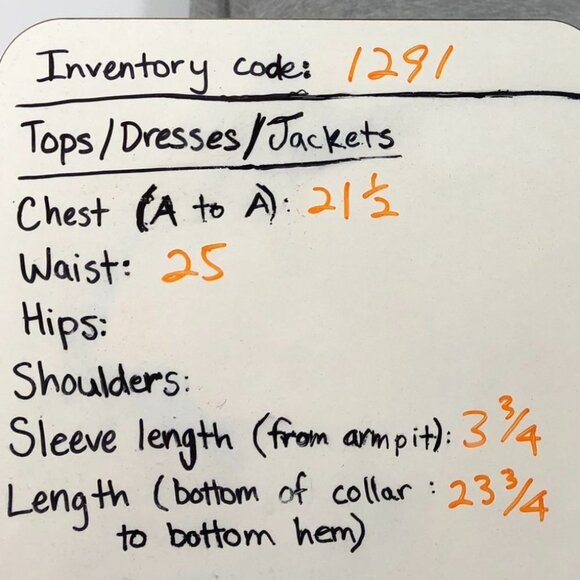 Inventory code: 1291
Tops/Dresses/Jackets
Chest (A to A): 21 1/2
Waist: 25
Hips:
Shoulders:
Sleeve length (from armpit): 3 3/4
Length (bottom of collar : 23 3/4
to bottom hem)